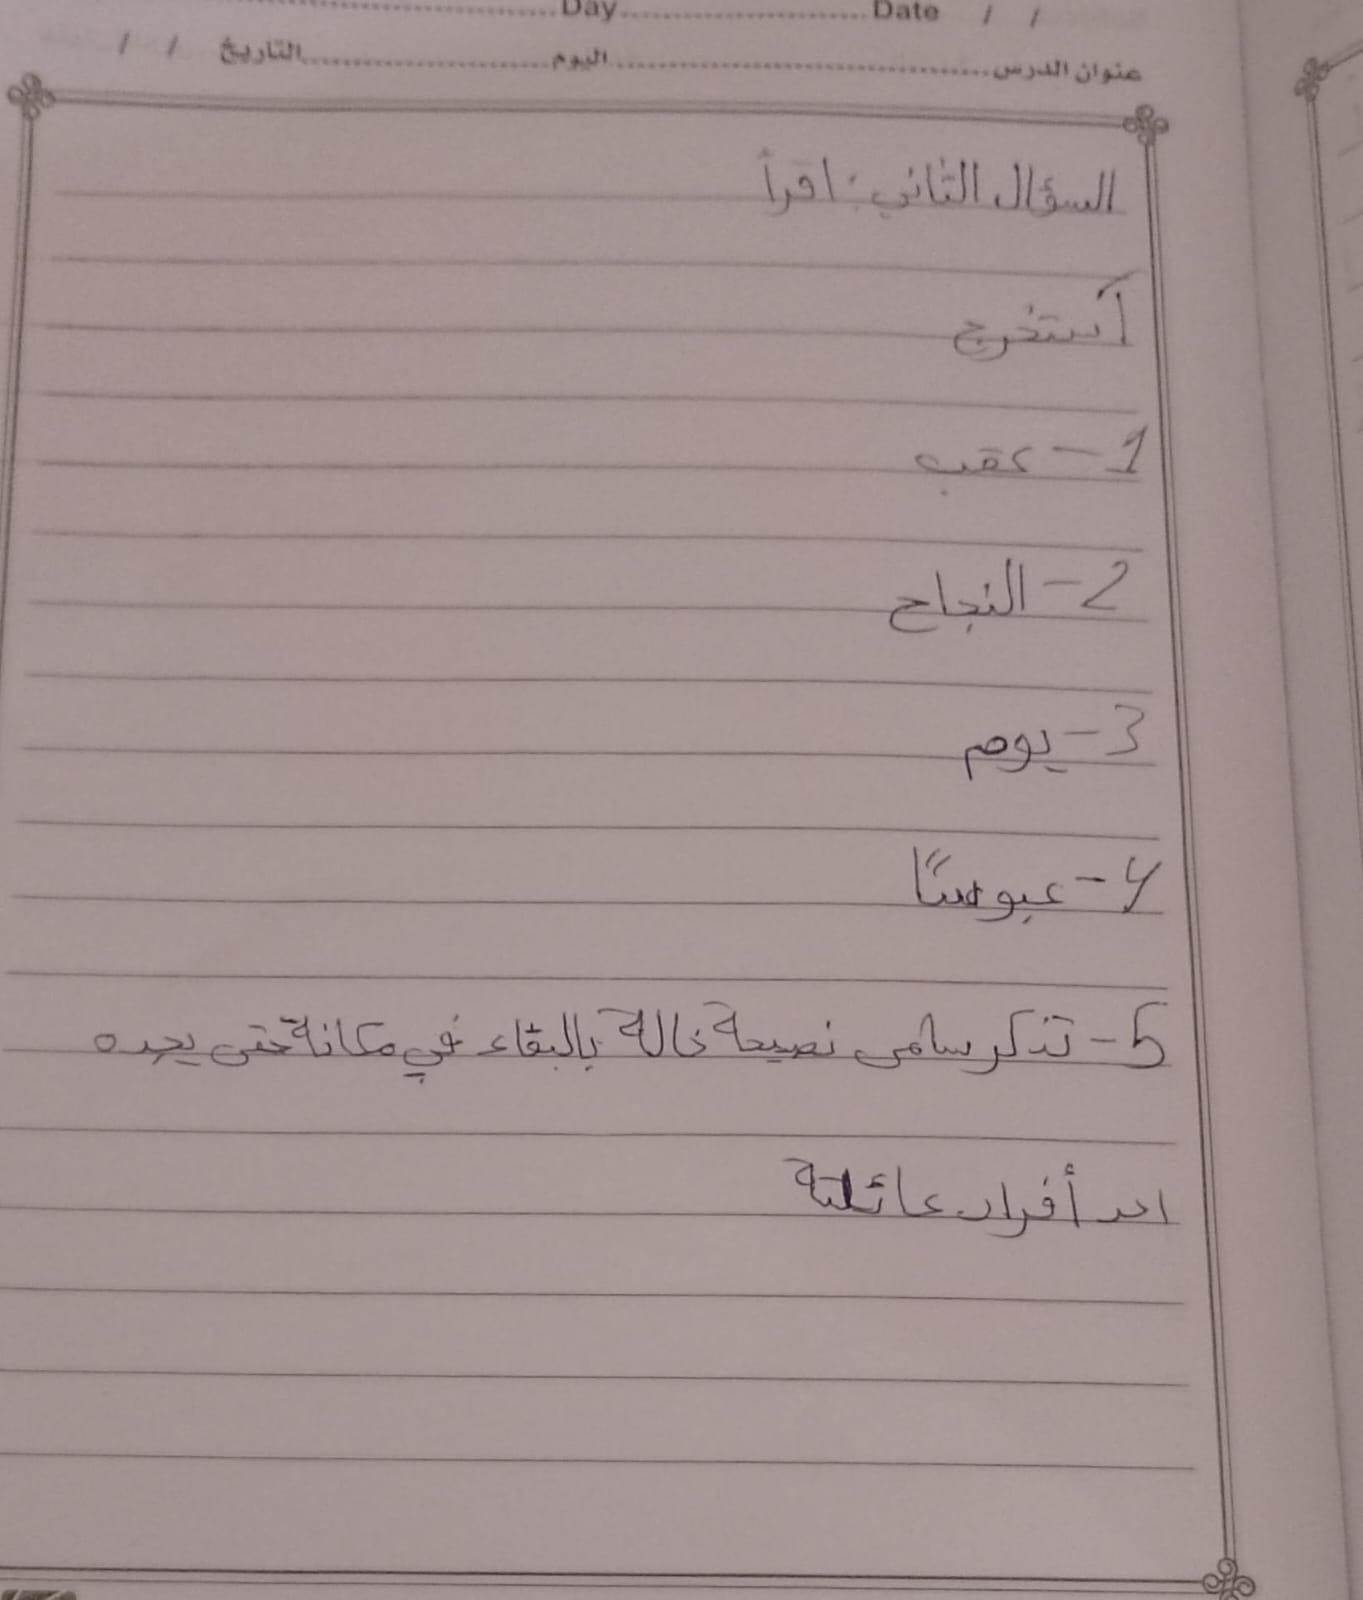 Day Date / /
عنوان الدرس اليوم التاريخ / /
السؤال الثاني : اقرأ
أستخرج
1 - عقب
2 - النجاح
3 - يوم
4 - عبوسًا
5 - تذكر سامي نصيحة خالة بالبقاء في مكانة حتى يجده
احد أفراد عائلتة